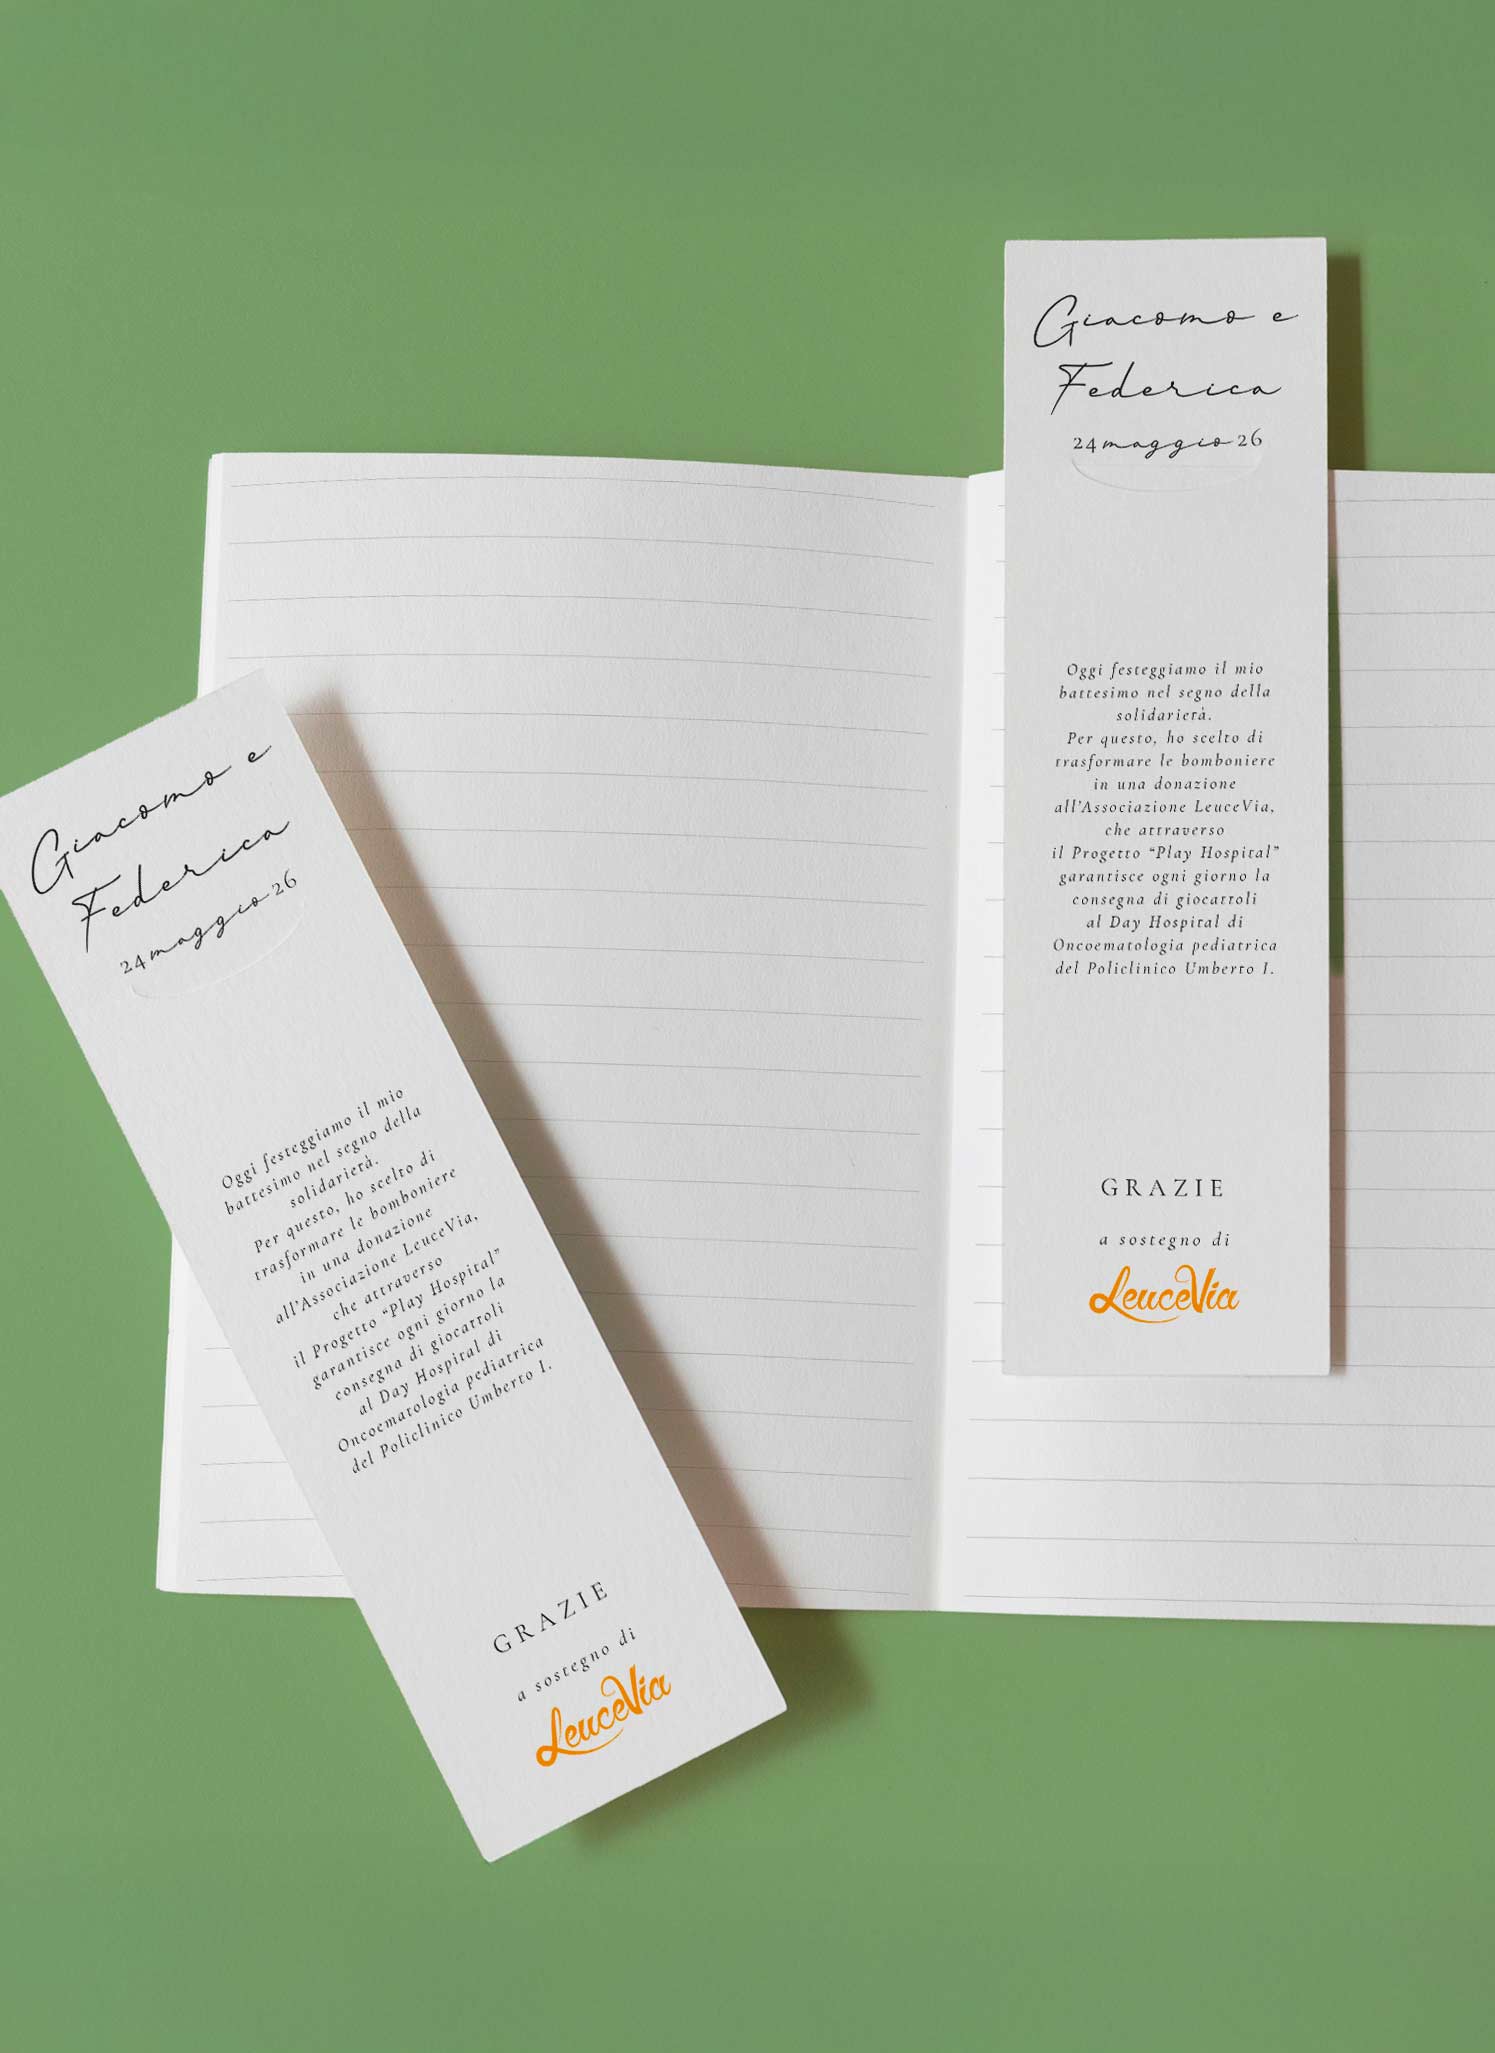 Giacomo e
Federica
24 maggio 26
Oggi festeggiamo il mio
battesimo nel segno della
solidarietà.
Per questo, ho scelto di
trasformare le bomboniere
in una donazione
all'Associazione LeuceVia,
che attraverso
il Progetto “Play Hospital”
garantisce ogni giorno la
consegna di giocattoli
al Day Hospital di
Oncoematologia pediatrica
del Policlinico Umberto I.
GRAZIE
a sostegno di
LeuceVia
Giacomo e
Federica
24 maggio 26
Oggi festeggiamo il mio
battesimo nel segno della
solidarietà.
Per questo, ho scelto di
trasformare le bomboniere
in una donazione
all'Associazione LeuceVia,
che attraverso
il Progetto “Play Hospital”
garantisce ogni giorno la
consegna di giocattoli
al Day Hospital di
Oncoematologia pediatrica
del Policlinico Umberto I.
GRAZIE
a sostegno di
LeuceVia